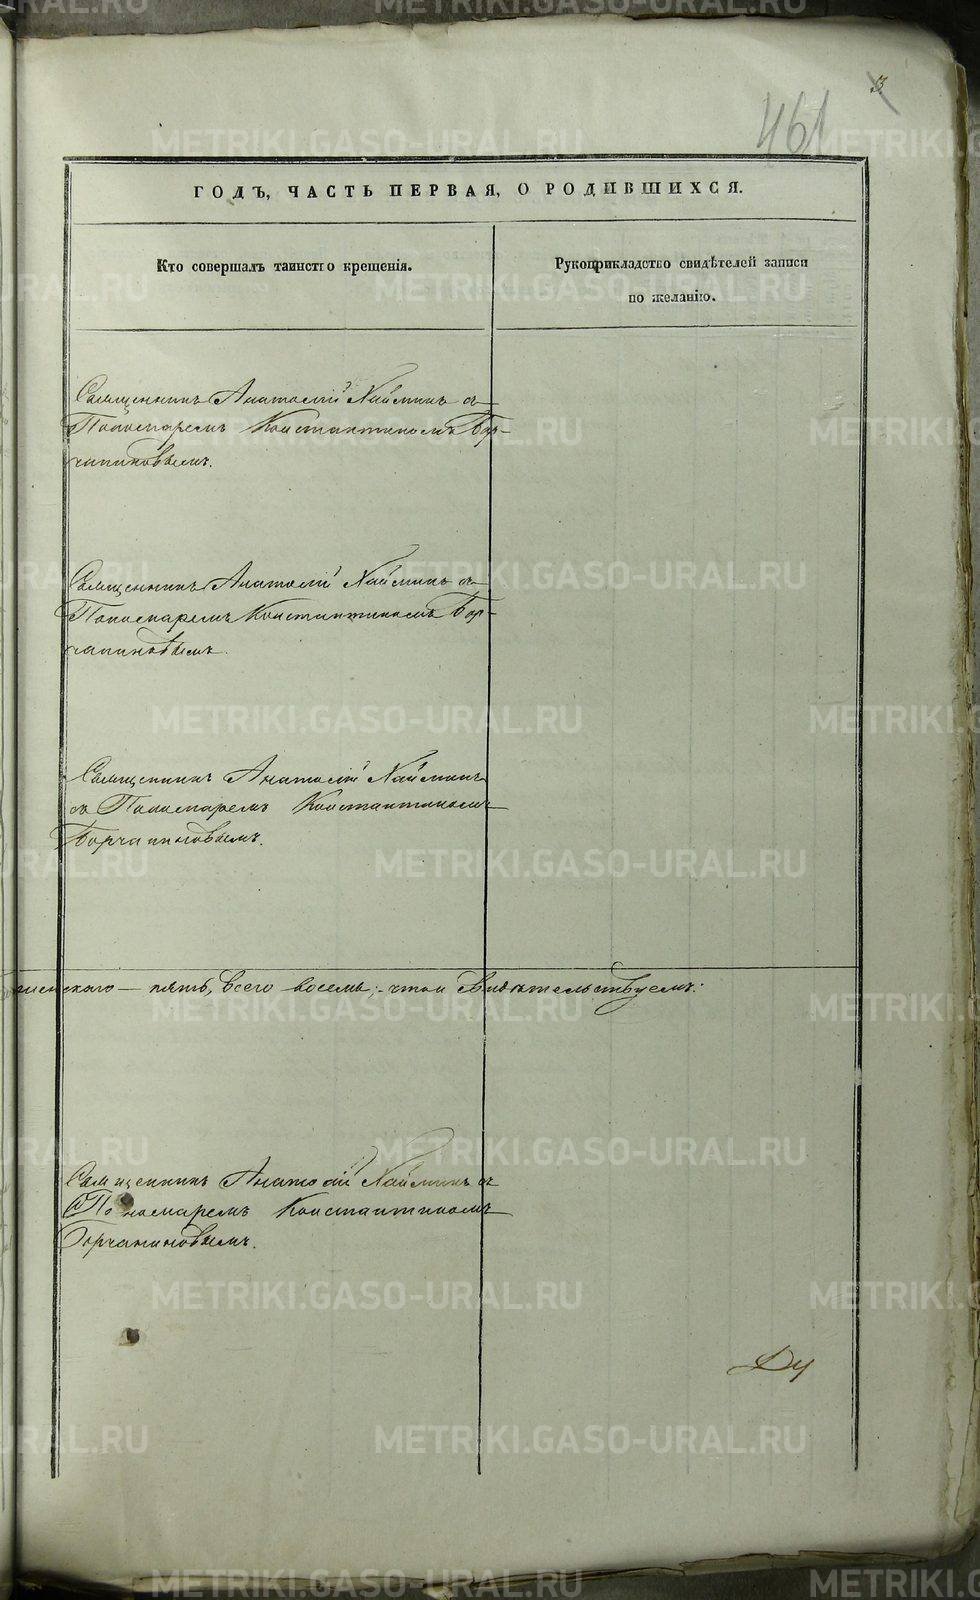 461
3
ГОДЪ, ЧАСТЬ ПЕРВАЯ, О РОДИВШИХСЯ.
Кто совершалъ таинство крещенія.
Рукоприкладство свидѣтелей записи
по желанію.
Священникъ Анатолій Наймикъ съ
Пономаремъ Константиномъ Бор-
чаниновымъ.
Священникъ Анатолій Наймикъ съ
Пономаремъ Константиномъ Бор-
чаниновымъ.
Священникъ Анатолій Наймикъ
съ Пономаремъ Константиномъ
Борчаниновымъ.
женскаго — пять, всего восемь; что и свидѣтельствуемъ:
Священникъ Анатолій Наймикъ съ
Пономаремъ Константиномъ
Борчаниновымъ.
METRIKI.GASO-URAL.RU